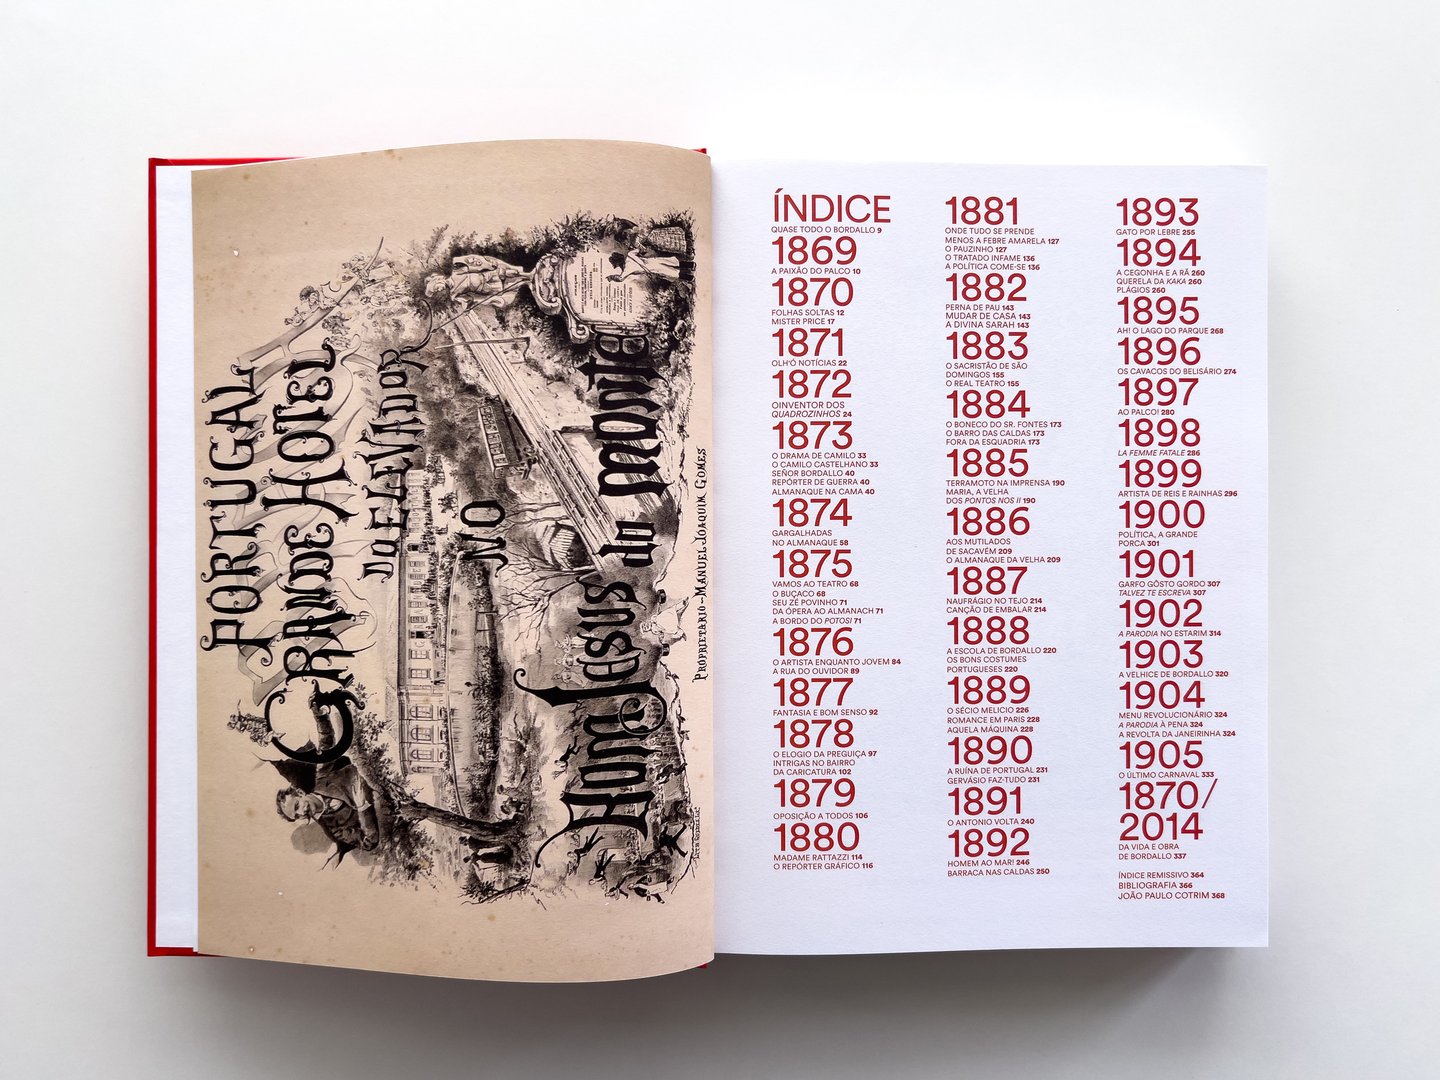 PORTUGAL
GRANDE HOTEL
DO ELEVADOR
NO
BOM JESUS do monte
PROPRIETARIO-MANUEL JOAQUIM GOMES
ÍNDICE
QUASE TODO O BORDALLO 9
1869
A PAIXÃO DO PALCO 10
1870
FOLHAS SOLTAS 12
MISTER PRICE 17
1871
OLH'Ó NOTÍCIAS 22
1872
OINVENTOR DOS
QUADROZINHOS 24
1873
O DRAMA DE CAMILO 33
O CAMILO CASTELHANO 33
SEÑOR BORDALLO 40
REPÓRTER DE GUERRA 40
ALMANAQUE NA CAMA 40
1874
GARGALHADAS
NO ALMANAQUE 58
1875
VAMOS AO TEATRO 68
O BUÇACO 68
SEU ZÉ POVINHO 71
DA ÓPERA AO ALMANACH 71
A BORDO DO POTOSI 71
1876
O ARTISTA ENQUANTO JOVEM 84
A RUA DO OUVIDOR 89
1877
FANTASIA E BOM SENSO 92
1878
O ELOGIO DA PREGUIÇA 97
INTRIGAS NO BAIRRO
DA CARICATURA 102
1879
OPOSIÇÃO A TODOS 106
1880
MADAME RATTAZZI 114
O REPÓRTER GRÁFICO 116
1881
ONDE TUDO SE PRENDE
MENOS A FEBRE AMARELA 127
O PAUZINHO 127
O TRATADO INFAME 136
A POLÍTICA COME-SE 136
1882
PERNA DE PAU 143
MUDAR DE CASA 143
A DIVINA SARAH 143
1883
O SACRISTÃO DE SÃO
DOMINGOS 155
O REAL TEATRO 155
1884
O BONECO DO SR. FONTES 173
O BARRO DAS CALDAS 173
FORA DA ESQUADRIA 173
1885
TERRAMOTO NA IMPRENSA 190
MARIA, A VELHA
DOS PONTOS NOS II 190
1886
AOS MUTILADOS
DE SACAVÉM 209
O ALMANAQUE DA VELHA 209
1887
NAUFRÁGIO NO TEJO 214
CANÇÃO DE EMBALAR 214
1888
A ESCOLA DE BORDALLO 220
OS BONS COSTUMES
PORTUGUESES 220
1889
O SÉCIO MELICIO 226
ROMANCE EM PARIS 228
AQUELA MÁQUINA 228
1890
A RUÍNA DE PORTUGAL 231
GERVÁSIO FAZ-TUDO 231
1891
O ANTONIO VOLTA 240
1892
HOMEM AO MAR! 246
BARRACA NAS CALDAS 250
1893
GATO POR LEBRE 255
1894
A CEGONHA E A RÃ 260
QUERELA DA KAKA 260
PLÁGIOS 260
1895
AH! O LAGO DO PARQUE 268
1896
OS CAVACOS DO BELISÁRIO 274
1897
AO PALCO! 280
1898
LA FEMME FATALE 286
1899
ARTISTA DE REIS E RAINHAS 296
1900
POLÍTICA, A GRANDE
PORCA 301
1901
GARFO GÔSTO GORDO 307
TALVEZ TE ESCREVA 307
1902
A PARODIA NO ESTARIM 314
1903
A VELHICE DE BORDALLO 320
1904
MENU REVOLUCIONÁRIO 324
A PARODIA À PENA 324
A REVOLTA DA JANEIRINHA 324
1905
O ÚLTIMO CARNAVAL 333
1870/
2014
DA VIDA E OBRA
DE BORDALLO 337
ÍNDICE REMISSIVO 364
BIBLIOGRAFIA 366
JOÃO PAULO COTRIM 368